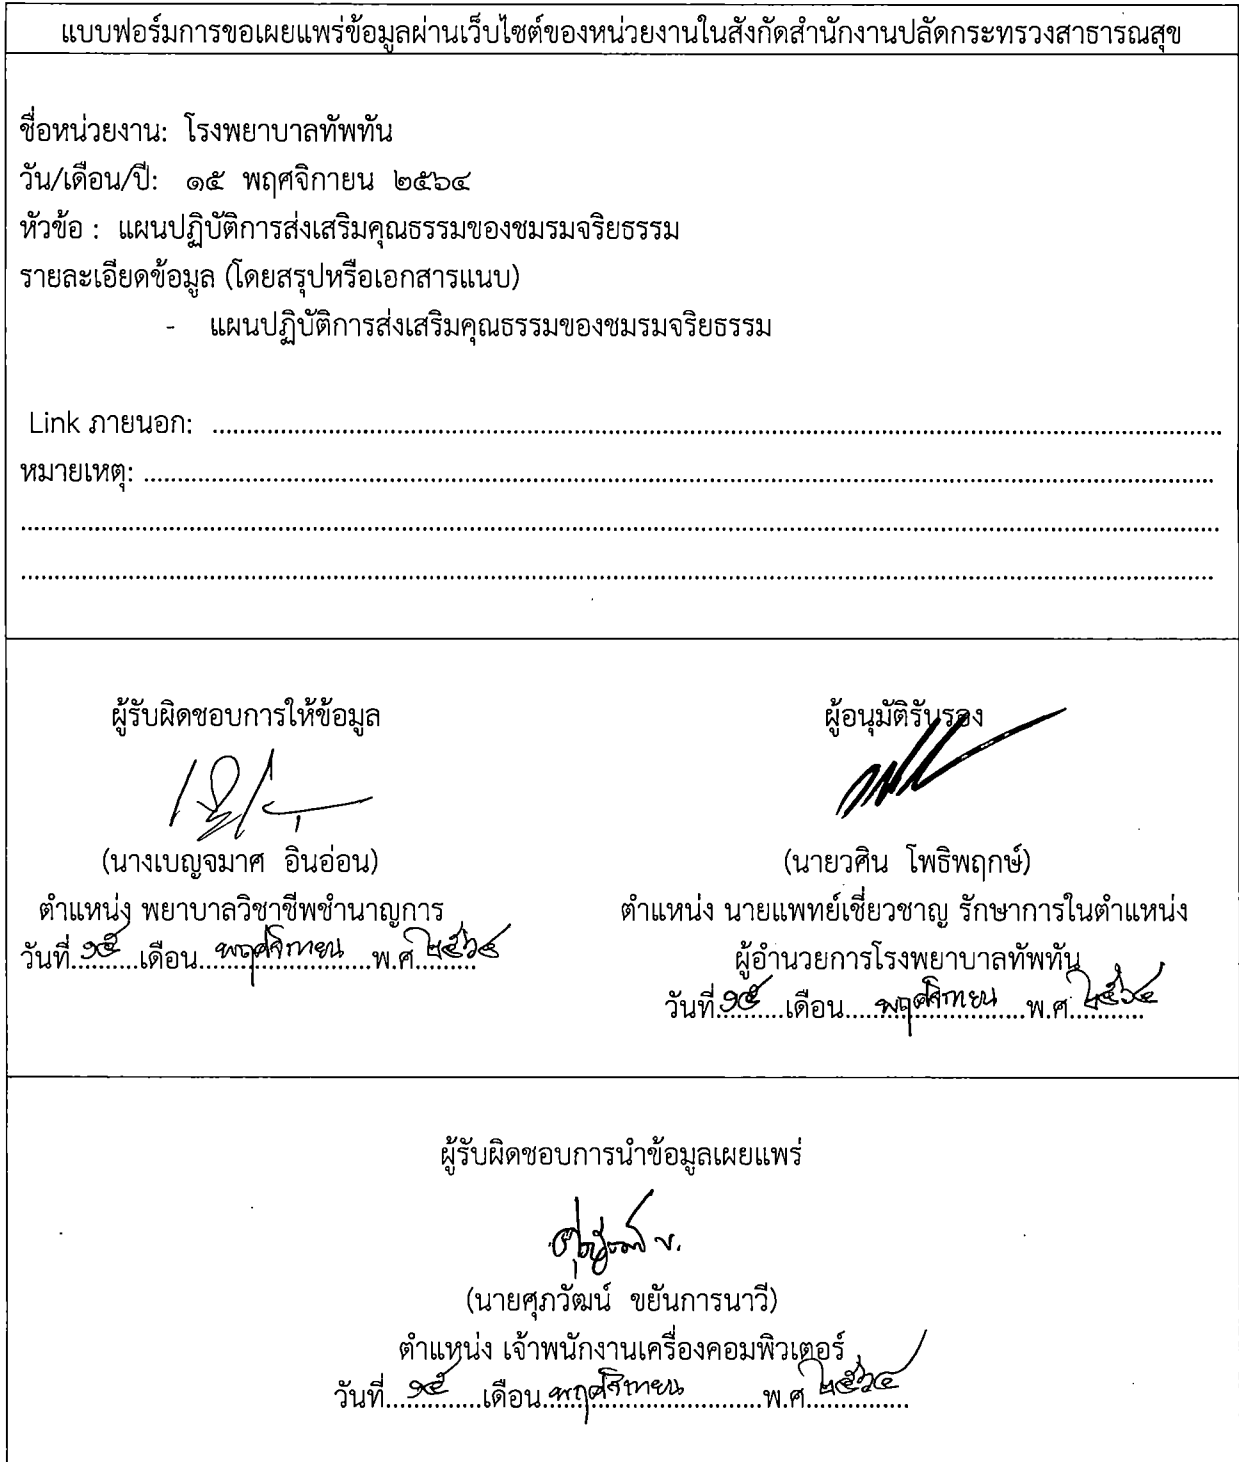 แบบฟอร์มการขอเผยแพร่ข้อมูลผ่านเว็บไซต์ของหน่วยงานในสังกัดสำนักงานปลัดกระทรวงสาธารณสุข
ชื่อหน่วยงาน: โรงพยาบาลทัพทัน
วัน/เดือน/ปี: ๑๕ พฤศจิกายน ๒๕๖๔
หัวข้อ : แผนปฏิบัติการส่งเสริมคุณธรรมของชมรมจริยธรรม
รายละเอียดข้อมูล (โดยสรุปหรือเอกสารแนบ)
- แผนปฏิบัติการส่งเสริมคุณธรรมของชมรมจริยธรรม
Link ภายนอก: ........................................
หมายเหตุ: ........................................
........................................
........................................
ผู้รับผิดชอบการให้ข้อมูล
(นางเบญจมาศ อินอ่อน)
ตำแหน่ง พยาบาลวิชาชีพชำนาญการ
วันที่..๑๕..เดือน..พฤศจิกายน..พ.ศ..๒๕๖๔
ผู้อนุมัติรับรอง
(นายวศิน โพธิพฤกษ์)
ตำแหน่ง นายแพทย์เชี่ยวชาญ รักษาการในตำแหน่ง
ผู้อำนวยการโรงพยาบาลทัพทัน
วันที่..๑๕..เดือน..พฤศจิกายน..พ.ศ..๒๕๖๔
ผู้รับผิดชอบการนำข้อมูลเผยแพร่
(นายศุภวัฒน์ ขยันการนาวี)
ตำแหน่ง เจ้าพนักงานเครื่องคอมพิวเตอร์
วันที่..๑๕..เดือน..พฤศจิกายน..พ.ศ..๒๕๖๔